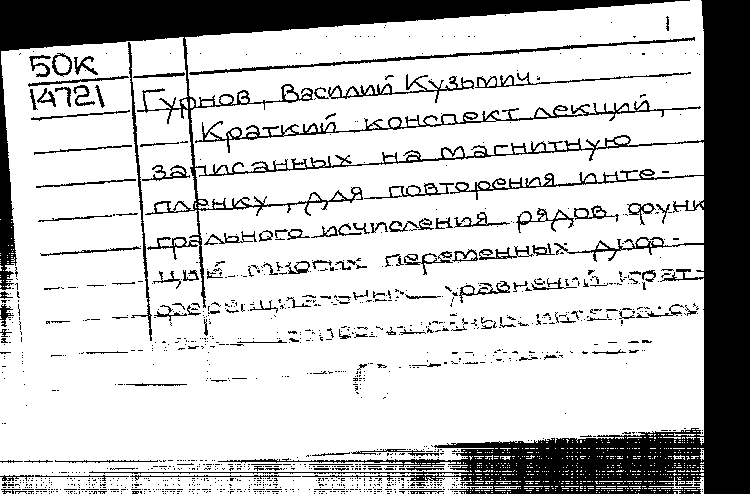 1
50К
14721
Гурнов, Василий Кузьмич.
Краткий конспект лекций,
записанных на магнитную
пленку, для повторения инте-
грального исчисления рядов, функ
ций многих переменных диф-
ференциальных уравнений крат-